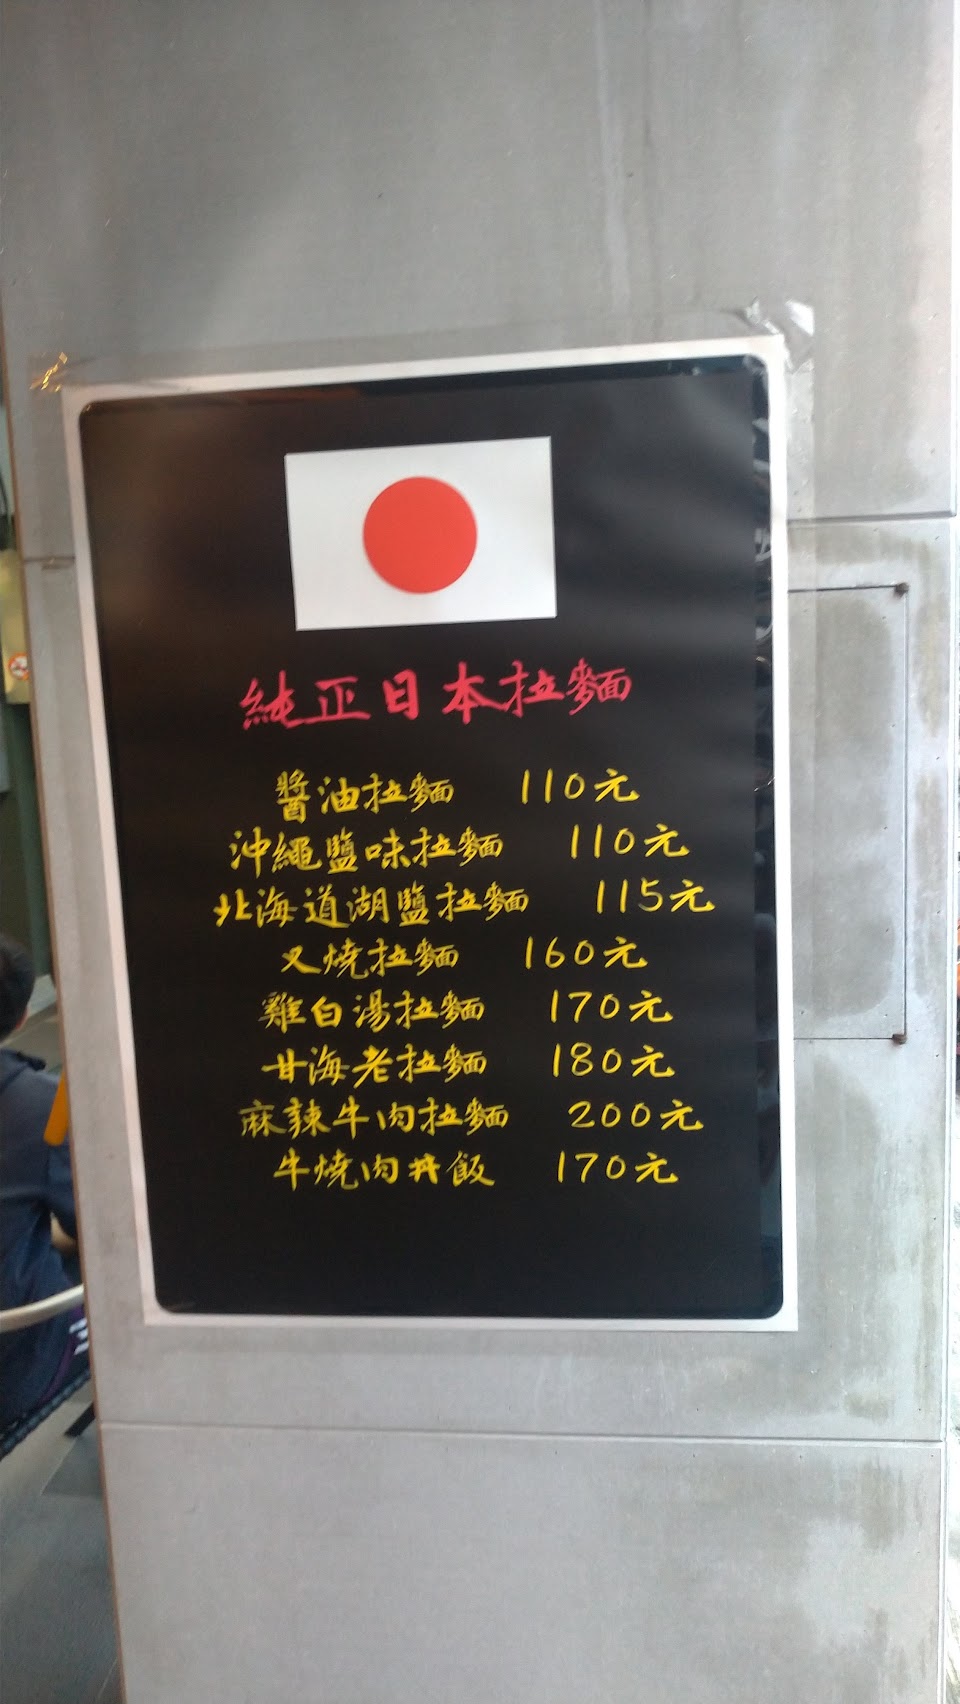 純正日本拉麵
醬油拉麵 110元
沖繩鹽味拉麵 110元
北海道湖鹽拉麵 115元
叉燒拉麵 160元
雞白湯拉麵 170元
甘海老拉麵 180元
麻辣牛肉拉麵 200元
牛燒肉丼飯 170元